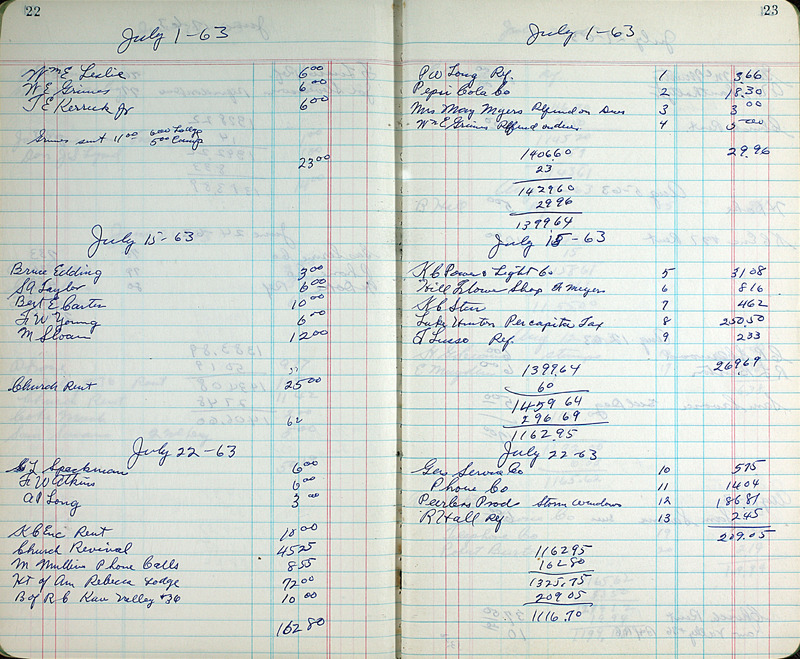 22
July 1-63
Wm E Leslie 6 00
W E Grimes 6 00
J E Kerrick Jr 6 00
Grimes sent 11 00 6 00 Lodge
5 00
23 00
July 15-63
Bruce Edding 3 00
SA Taylor 6 00
Bert E Carter 10 00
F W Young 6 00
M Sloan 12 00
Church Rent 25 00
62
July 22-63
L Speckman 6 00
F W Atkins 6 00
AP Long 3 00
KC Rent 18 00
Church Revival 45 25
M Mullins Phone Calls 8 55
Ht of Am Rebecca Lodge 72 00
B of R C Kaw Valley #36 10 00
162 80
23
July 1-63
PW Long Ref. 1 3 66
Pepsi Cola Co 2 18.30
Mrs May Myers Refund on Dues 3 3 00
Wm E Grimes Refund on dues 4 5.00
29.96
1406 60
23.
1429 60
29 96
1399 64
July 15-63
KC Power & Light Co 5 31 08
Hill Flower Shop A Myers 6 8 16
KC Star 7 4 62
Per capita Tax 8 250.50
Lusso Ref. 9 2 33
296 69
1399.64
60
1459 64
296 69
1162.95
July 22-63
Gas Service Co 10 5 75
Phone Co 11 14 04
Peerless Prod Storm windows 12 186 81
R Hall Ref 13 2 45
209.05
1162 95
162 80
1325.75
209 05
1116.70